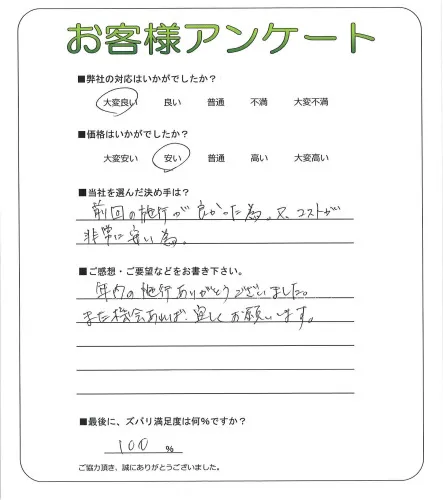 お客様アンケート
■弊社の対応はいかがでしたか?
大変良い 良い 普通 不満 大変不満
■価格はいかがでしたか?
大変安い 安い 普通 高い 大変高い
■当社を選んだ決め手は?
前回の施行が良かった為。又、コストが
非常に安い為。
■ご感想・ご要望などをお書き下さい。
年内の施行ありがとうございました。
また機会あれば宜しくお願いします。
■最後に、ズバリ満足度は何%ですか?
100 %
ご協力頂き、誠にありがとうございました。